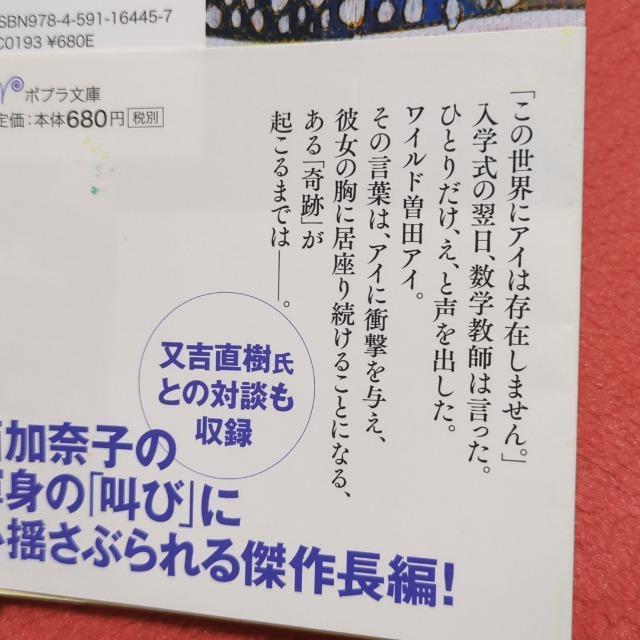 ISBN978-4-591-16445-7
C0193 ¥680E
ポプラ文庫
定価：本体680円 税別
「この世界にアイは存在しません。」
入学式の翌日、数学教師は言った。
ひとりだけ、え、と声を出した。
ワイルド曽田アイ。
その言葉は、アイに衝撃を与え、
彼女の胸に居座り続けることになる、
ある「奇跡」が
起こるまでは――。
又吉直樹氏
との対談も
収録
加奈子の
身の「叫び」に
揺さぶられる傑作長編！